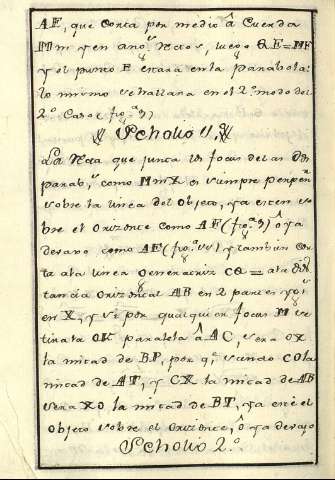 AF, que corta por medio â Cuerda
Mm y en ang.º Recto, luego QE=MF
y el punto E estara en la parabola:
lo mismo se hallara en el 2º modo del
2º Caso (fig.ª 9)
Scholio 1.º
La Recta que junta los focus de las dos
parab.s como MmX es siempre perpen
sobre la linea del Objeto, ya esten so
bre el Orizonte como AF (fig.ª 9) ô ya
devaxo como AF (fig.ª 10) y tambien cor
ta ala linea Generatriz CQ = ala dis
tancia Orizontal AB en 2 partes yg.s
en X, y si por qualquier focus M se
tira la OK paralela â AC, sera OX
la mitad de BP, por q.e siendo CO la
mitad de AT, y CX la mitad de AB
sera XO la mitad de BT, ya esté el
Objeto sobre el Orizonte, ô ya devajo
Scholio 2.º